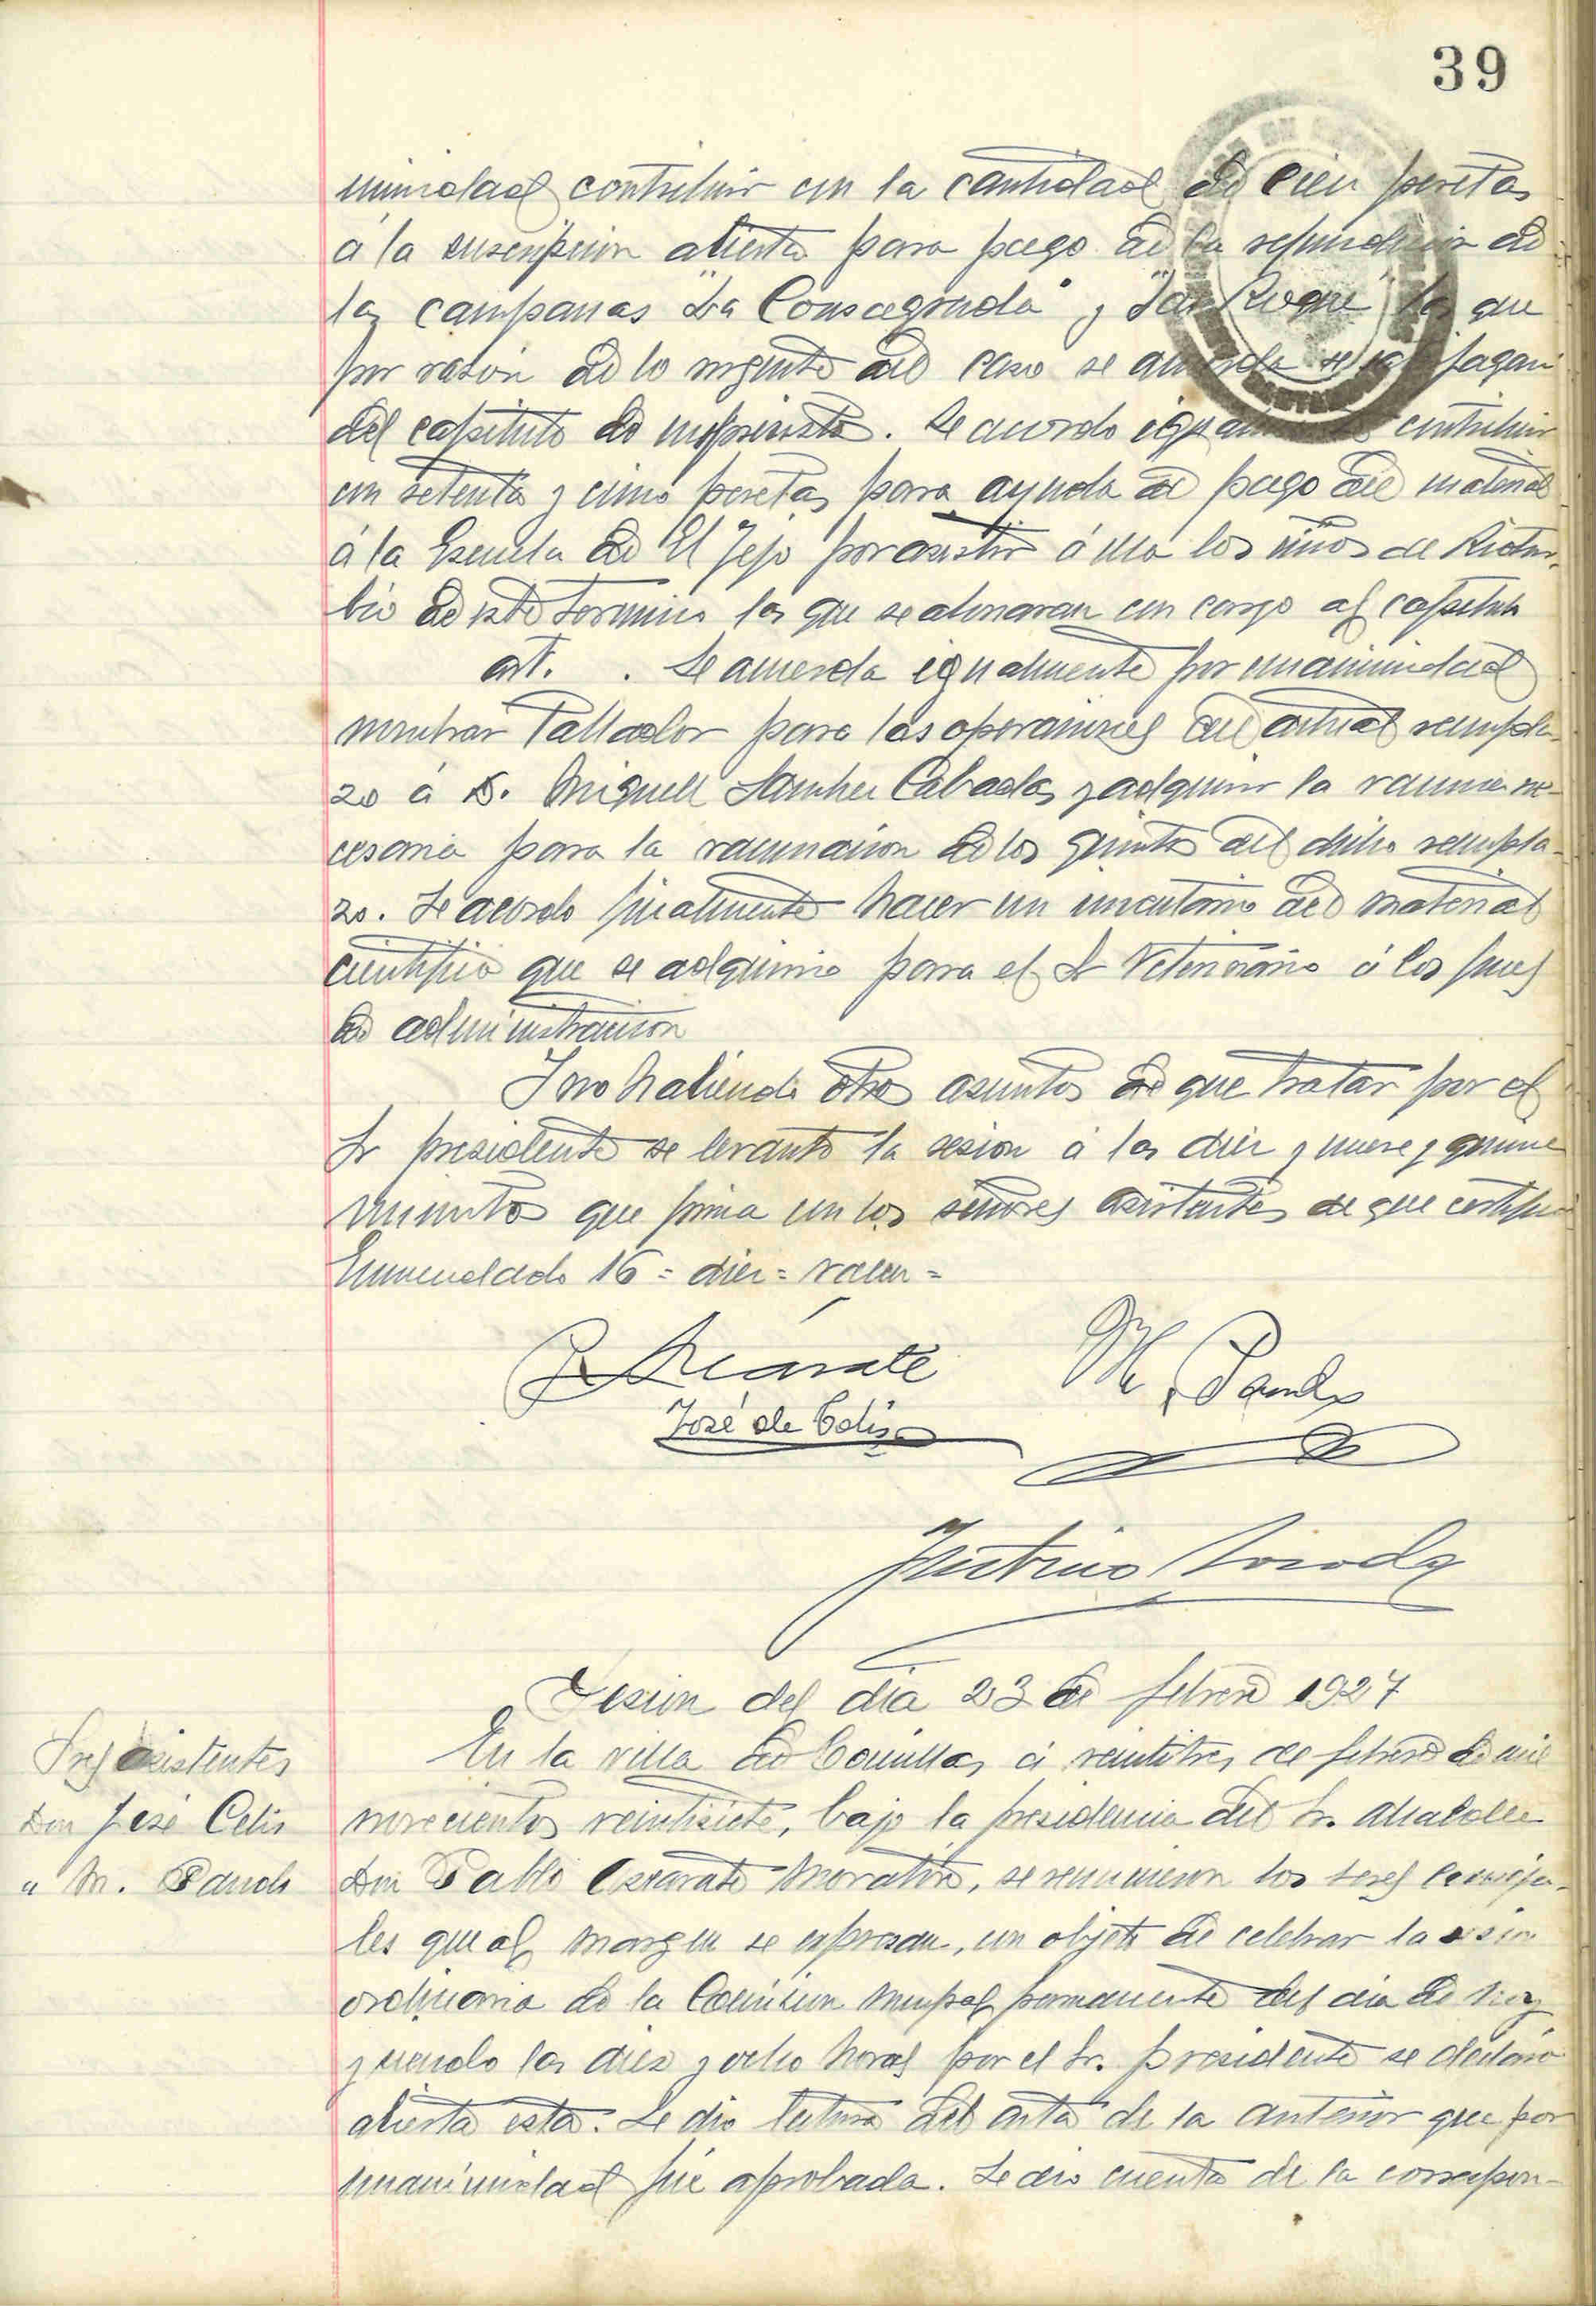 39
nimidad contribuir con la cantidad de cien pesetas
á la suscripcion abierta para pago de la refundicion de
las campanas "La Consagrada" y "San Roque" las que
por razón de lo urgente del caso se acuerda se pagan
del capitulo de imprevistos. Se acordo igualmente contribuir
con setenta y cinco pesetas para ayuda de pago del material
á la Escuela de El Tejo por asistir á ella los niños de Rioturbio
de este termino las que se abonaran con cargo al capitulo
art. . Se acuerda igualmente por unanimidad
nombrar Tallador para las operaciones del actual reempla-
zo á D. Miguel Sanchez Cabadas y adquirir la vacuna ne-
cesaria para la vacunacion de los quintos del dicho reempla-
zo. Se acordo finalmente hacer un inventario del material
cientifico que se adquirio para el Sr Veterinario á los fines
de administracion
Y no habiendo otros asuntos de que tratar por el
Sr presidente se levanto la sesion á las diez y nueve y quince
minutos que firma con los señores asistentes de que certifico
Enmendado 16 = diez = valen =
P. Azcárate
M. Pando
José de Celis
Sesion del dia 23 de febrero 1927
Sres asistentes
Don José Celis
" M. Pando
En la villa de Comillas á veintitres de febrero de mil
novecientos veintisiete, bajo la presidencia del Sr. Alcalde
Don Pablo Azcarate Moratino, se reunieron los sres conceja-
les que al margen se expresan, con objeto de celebrar la sesion
ordinaria de la Comision Mupal permanente del dia de hoy
y siendo las diez y ocho horas por el Sr. presidente se declaró
abierta esta. Se dio lectura del acta de la anterior que por
unanimidad fué aprobada. Se dio cuenta de la correspon-